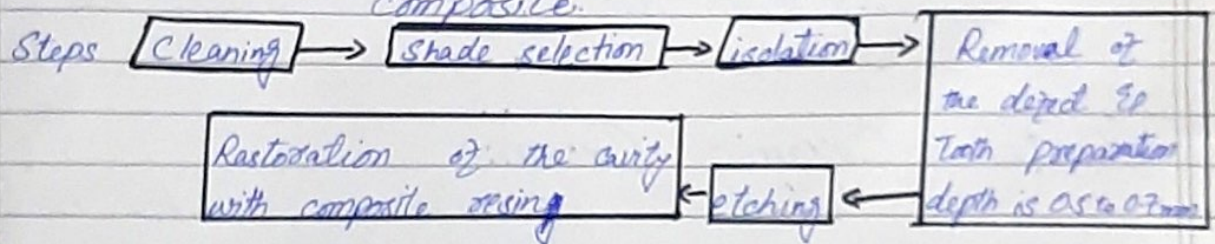 composite.
Steps Cleaning → Shade selection → isolation → Removal of
the defect &
Tooth preparation
depth is 0.5 to 0.7mm
Rastoration of the cavity
with composite resing
etching